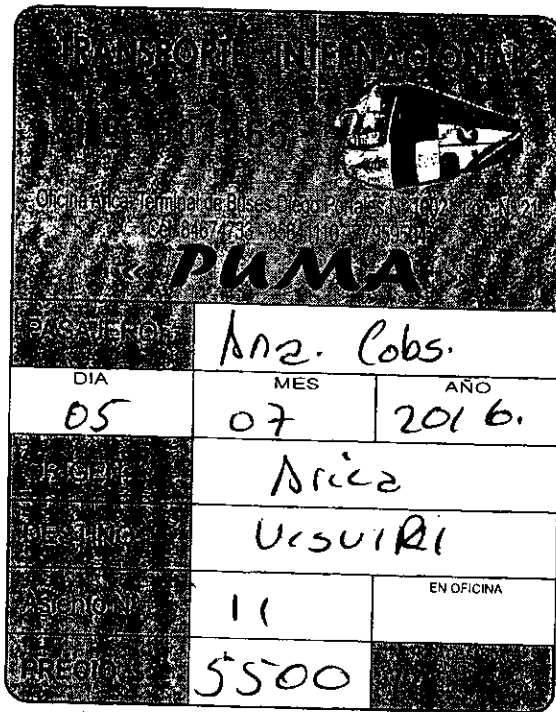 TRANSPORTE INTERNACIONAL
Oficina Arica: Terminal de Buses Diego Portales Nº 1002 Loc. Nº 21
« PUMA »
PASAJERO
Ana. Cobs.
DIA MES AÑO
05 07 2016.
Arica
DESTINO
VISVIRI
ASIENTO Nº 11 EN OFICINA
PRECIO $ 5500